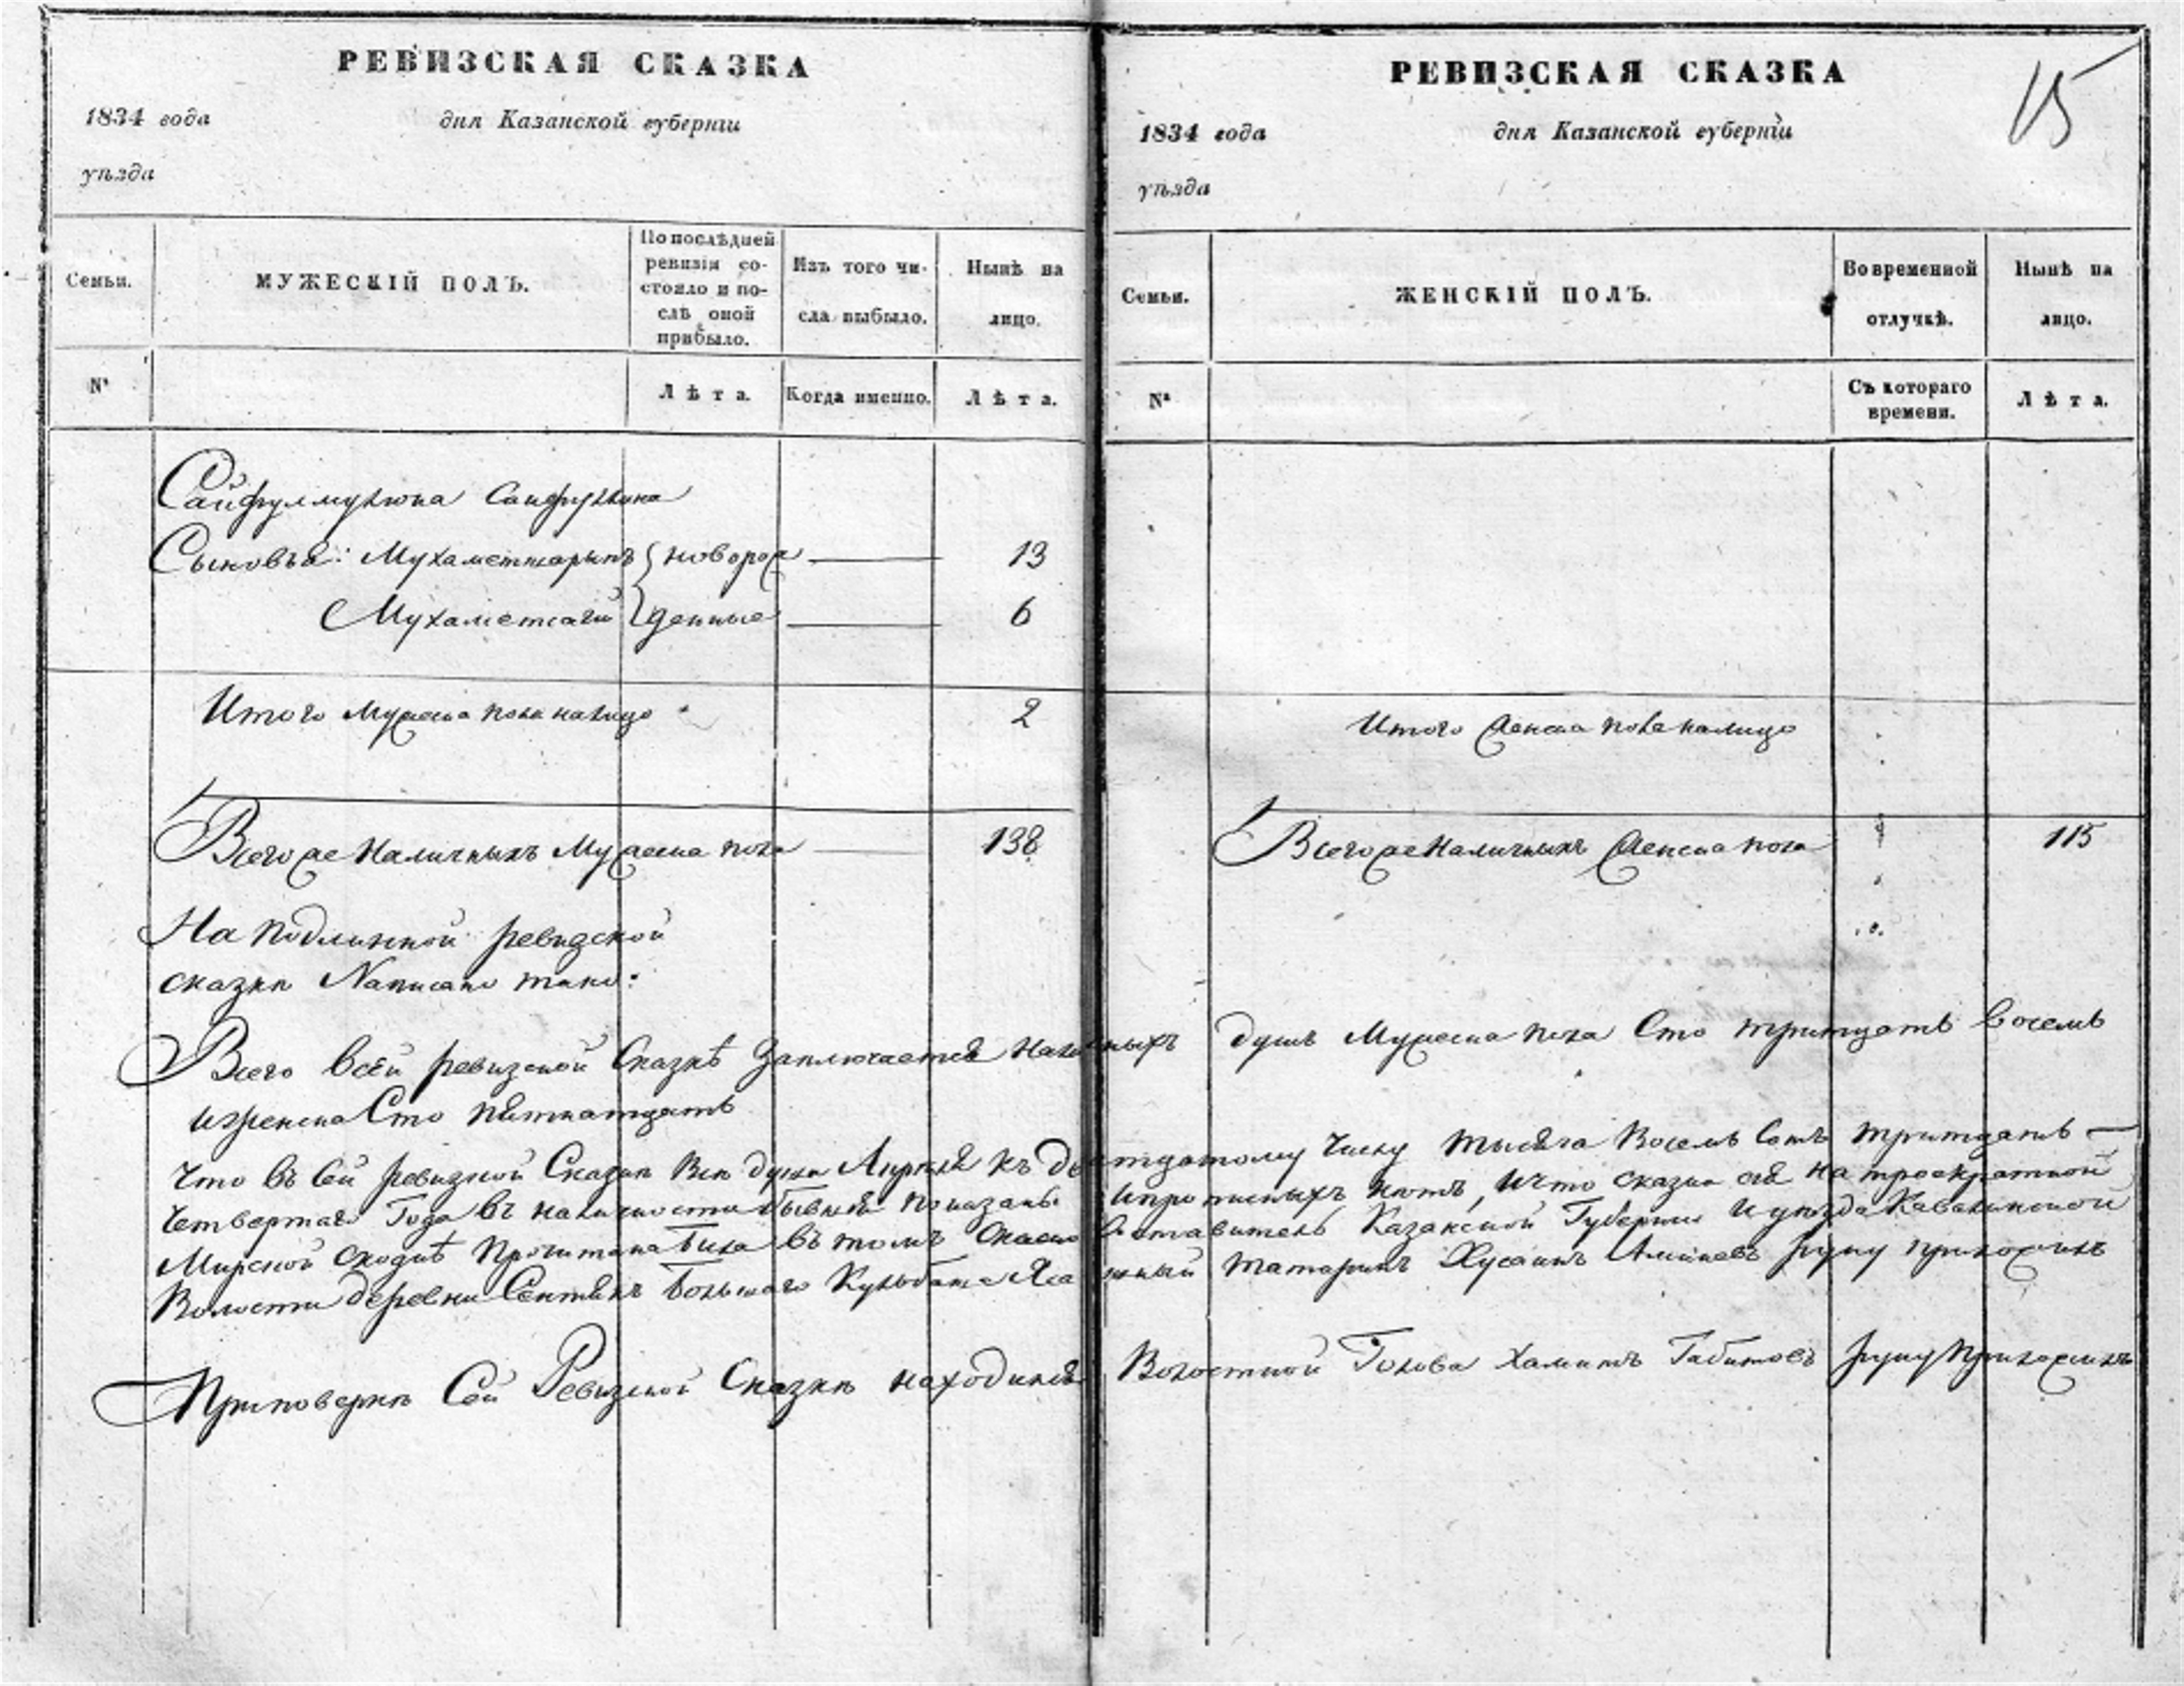 РЕВИЗСКАЯ СКАЗКА
1834 года дня Казанской губерніи
уѣзда
Семьи.
МУЖЕСКІЙ ПОЛЪ.
По послѣдней ревизіи состояло и послѣ оной прибыло.
Изъ того числа выбыло.
Нынѣ на лицо.
№
Лѣта.
Когда именно.
Лѣта.
Сайфулмулюка
Сыновья: Мухаметшарипъ новорож 13
Мухаметгали денные 6
Итого Мужеска пола налицо 2
Всего же Наличныхъ Мужеска пола 138
На подлинной ревизской
сказкѣ Написано тако:
РЕВИЗСКАЯ СКАЗКА
15
1834 года дня Казанской губерніи
уѣзда
Семьи.
ЖЕНСКІЙ ПОЛЪ.
Во временной отлучкѣ.
Нынѣ на лицо.
№
Съ котораго времени.
Лѣта.
Итого Женска пола налицо
Всего же Наличныхъ Женска пола 115
Всего всей ревизской Сказкѣ Заключается душъ Мужеска пола Сто тритцать восемь
и женска Сто пятнатцать
Что въ Сей ревизской Сказкѣ Всѣ души Апреля къ числу тысяча Восемь Сотъ тритцать
Четвертаго Года въ наличности бывшія показаны и прописныхъ нѣтъ, и что сказка сія на троекратной
Мирской сходкѣ Прочитана была въ томъ Казанской Губерніи и уѣзда
Волости деревни Большаго Татаринъ Хусаинъ руку приложилъ
При повѣркѣ Сей Ревизской Сказки находился Волостной Голова Хамитъ Габитовъ руку Приложилъ